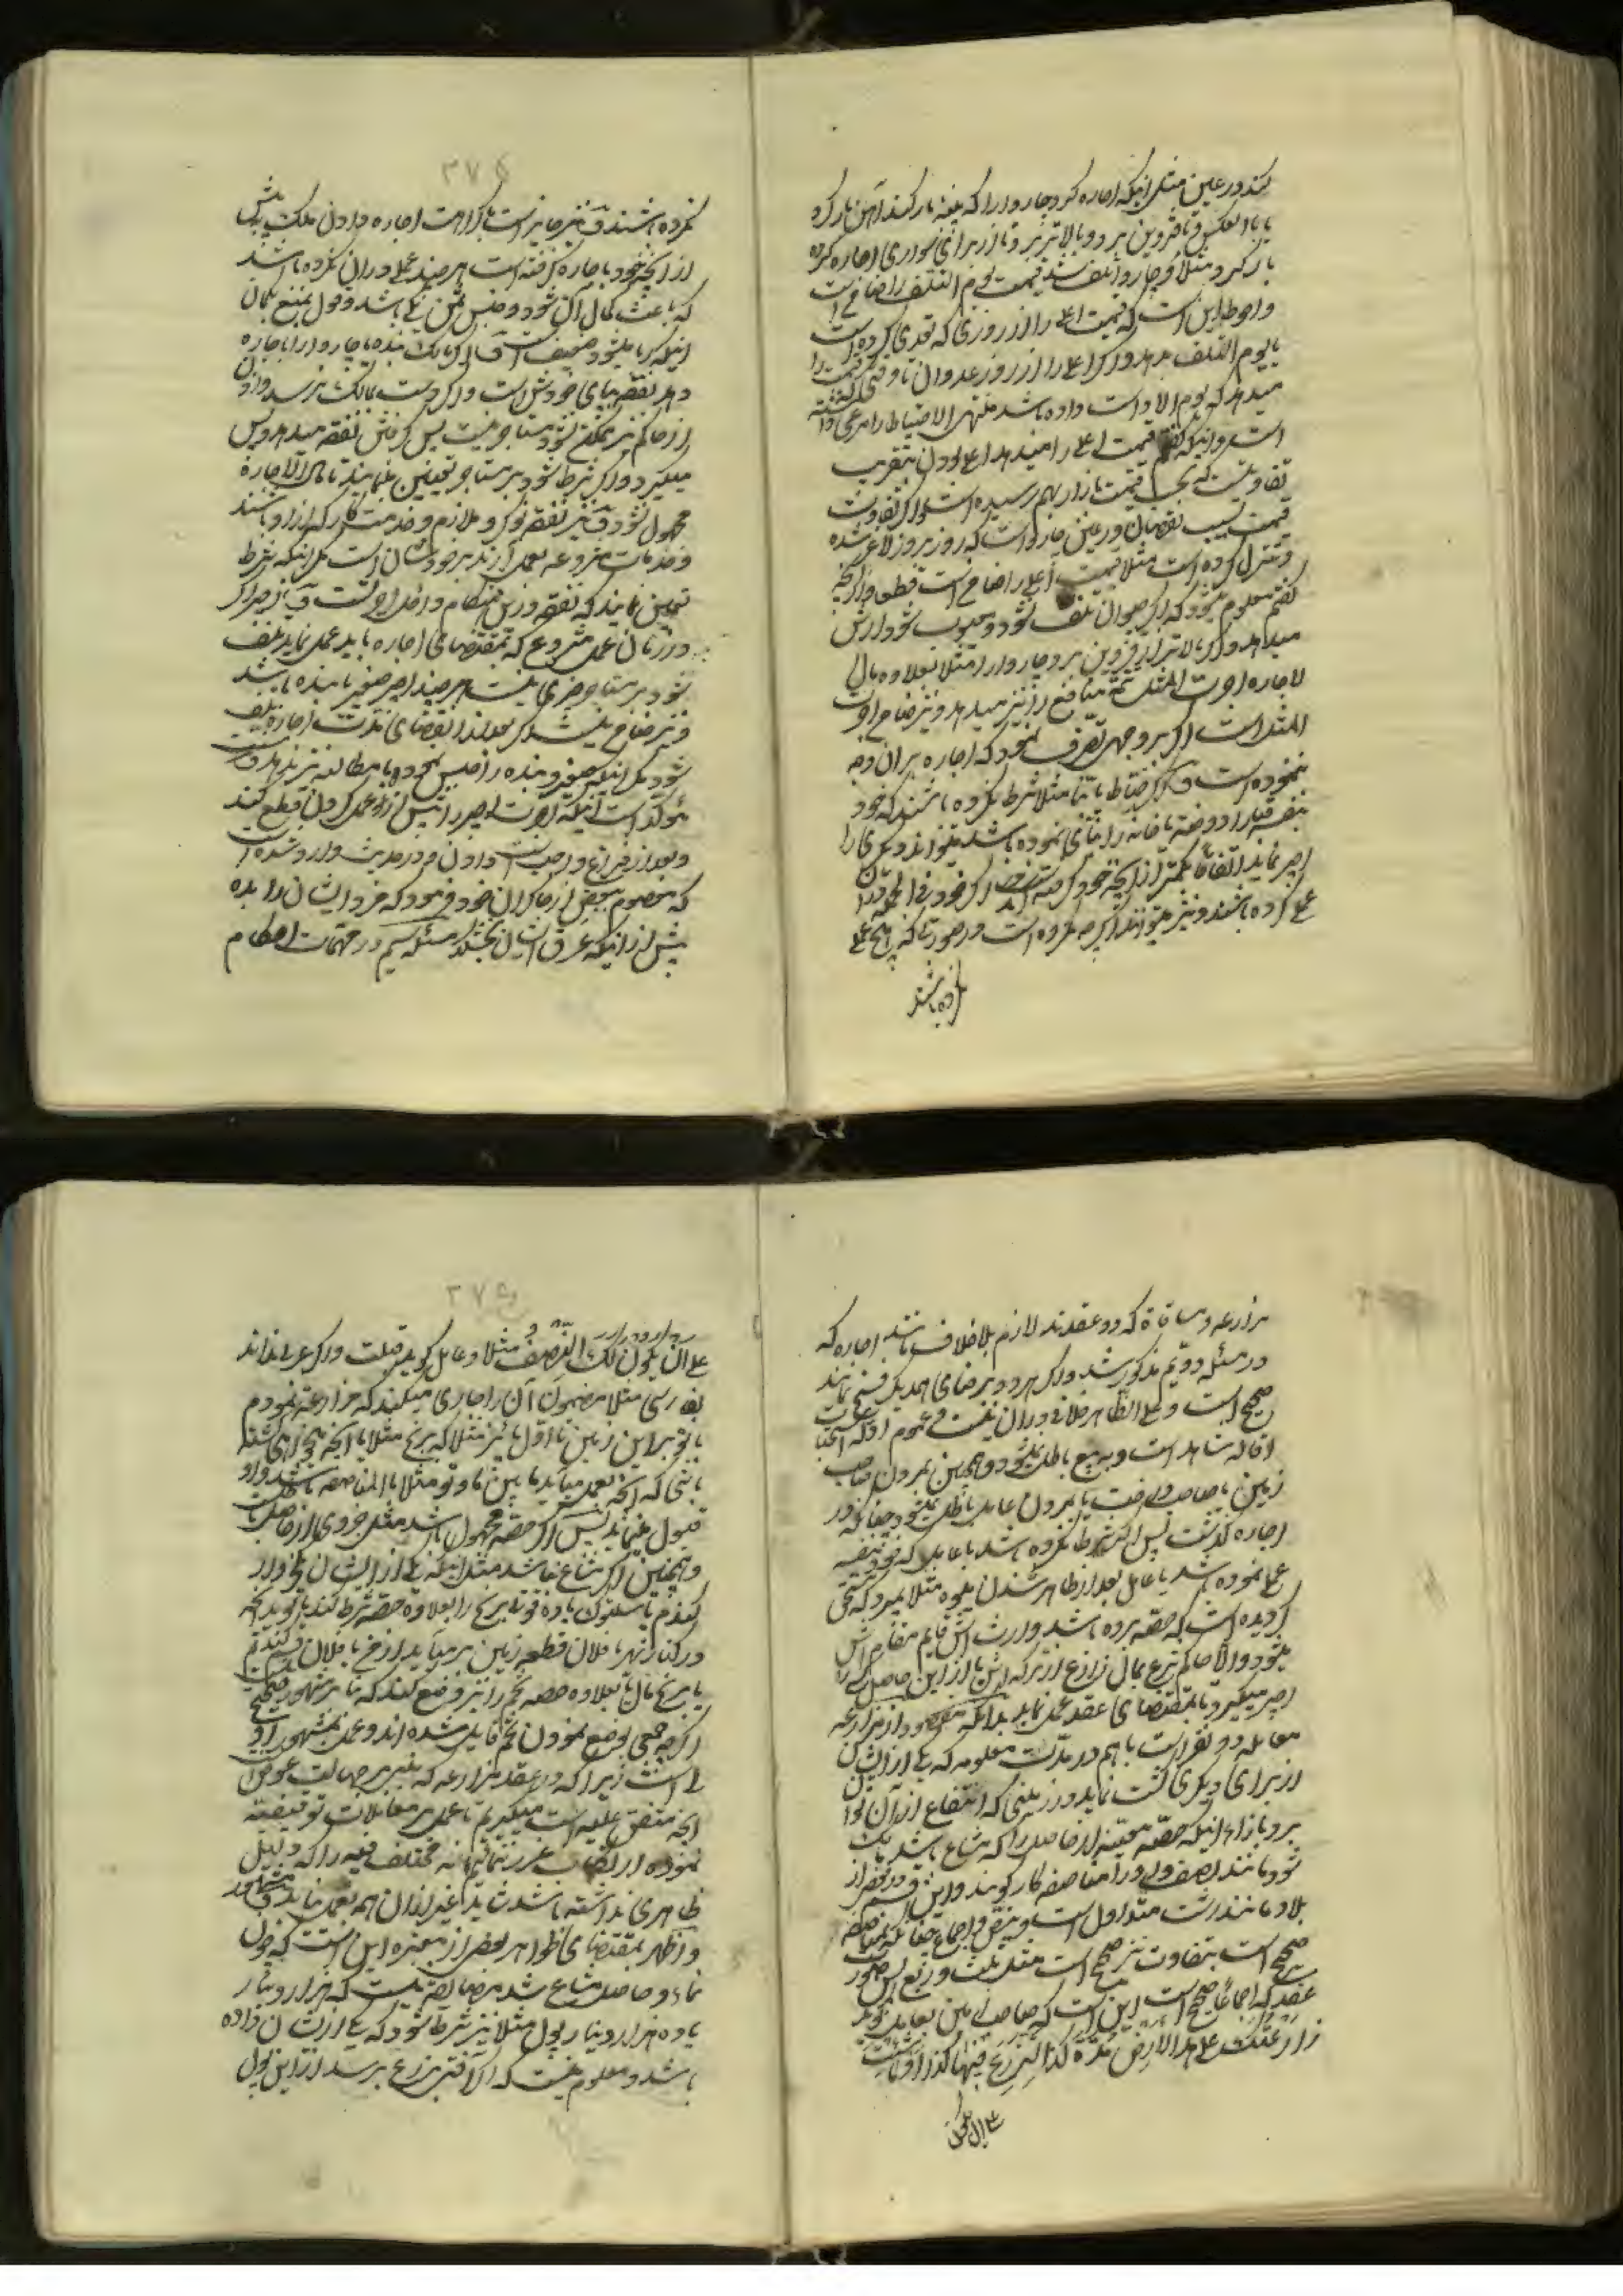 کند در عین مثل اینکه اجاره کرد چاروا را که پنبه بار کند آهن بار کرد
یا بالعکس و تا قزوین برد و بالاتر برد و یا از برای سواری اجاره کرده
بار کرد مثلا و چاروا تلف شد قیمت یوم التلف را ضامن است
و احوط این است که قیمت اعلی را از روزی که تعدی کرده است
تا یوم التلف بدهد و اگر اعلی را از روز عدوان تا وقتی که قیمت را
میدهد که یوم الاداست داده باشد منتهی الاحتیاط را مرعی داشته
است و اینکه گفتم قیمت اعلی را میدهد اعلی بودن بتقریب
تفاوتست که بحسب قیمت بازار بهم رسیده است و اگر تفاوت
قیمت بسبب نقصان در عین چاروا است که روز بروز لاغر شده
و تنزل کرده است مثلا قیمت اعلی را ضامن است قطعا و از آنچه
گفتم معلوم میشود که اگر حیوان تلف نشود و معیوب شود ارش
میدهد و اگر بالاتر از قزوین برد چاروا را مثلا بعلاوه مال
الاجاره اجرت المثل تتمه منافع را نیز میدهد و نیز ضامن اجرت
المثل است اگر بر وجهی تصرف نمود که اجاره بر آن وجه
ننموده است و اگر خیاط یا بنا مثلا شرط نکرده باشند که خود
بنفسه قبا را دوخته یا خانه را بنای نموده باشد میتواند دیگری را
اجیر نماید اتفاقا بکمتر از آنچه خود گرفته اند اگر خود فی الجمله در آن
عمل کرده باشند و نیز میتوانند اگرچه مکروه است در صورتی که هیچ عمل
نکرده باشند
۳۷۴
نکرده باشند و نیز جایز است با کراهت اجاره دادن ملک بیش
از آنچه خود باجاره گرفته است هر چند عملی در آن نکرده باشد
که باعث کمال آن شود و جنس ثمن یکی باشد و قول بمنع بگمان
اینکه ربا میشود ضعیف است و اگر مالک بنده یا چاروا را باجاره
دهد نفقه بپای خودش است و اگر دست بمالک نرسد و اذن
از حاکم نیز ممکن نشود مستاجر بنیت پس گرفتن نفقه میدهد و پس
میگیرد و اگر شرط شود بر مستاجر تعیین مینمایند تا مال الاجاره
مجهول نشود و نیز نفقه نوکر و ملازم و خدمت کار که آزاد باشند
و خدمات مشروعه بعمل آرند بر خودشان است مگر اینکه شرط
تعیین نمایند که نفقه در این هنگام داخل اجرتست و نیز اجیر اگر
در زمان عمل مشروع که بمقتضای اجاره باید عمل نماید تلف
شود بر مستاجر چیزی نیست هر چند اجیر صغیر یا بنده باشد
و نیز ضامن نیست اگر بعد از انقضای مدت اجاره تلف
شود مگر اینکه صغیر و بنده را حبس نموده با مطالبه نیز ندهد و سنت
مؤکد است اینکه اجرت اجیر را پیش از آنکه عمل کردن قطع کنند
و بعد از فراغ واجب است دادن و در حدیث وارد شده است
که معصوم ببعض از چاکران خود فرمود که مزد ایشان را بده
پیش از اینکه عرق ایشان بخشکد مسئله سیم در مهمات احکام
مزارعه و مساقاة که دو عقدند لازم بلاخلاف مانند اجاره که
در مسئله دویم مذکور شد و اگر هر دو برضای همدیگر فسخ نمایند
صحیح است و علی الظاهر خلافی در آن نیست و عموم ادله استحباب
اقاله شاهد است و به بیع باطل نمیشود و همچنین بمردن صاحب
زمین یا صاحب درخت یا بمردن عامل باطل نمیشود چنانکه در
اجاره گذشت پس اگر شرط نکرده باشد با عامل که خود بنفسه
عمل نموده باشد یا عامل بعد از ظاهر شدن میوه مثلا بمیرد که مستحق
گردیده است که حصه برده باشد وارث اش قایم مقام اش
میشود والا حاکم شرع بمال زارع از ترکه اش یا از این حاصل کسی را
اجیر میگیرد تا بمقتضای عقد عمل نماید بدانکه مقصود از مزارعه
معامله دو نفر است با هم در مدت معلومه که یکی از ایشان
از برای دیگری کشت نماید در زمینی که انتفاع از آن توان
برد بازاء اینکه حصه معینه از حاصل را که مشاع باشد مالک
شود مانند نصف و او را مناصفه کار گویند و این قسم در بعض از
بلاد مانند رشت متداول است و بنص و اجماع چنانکه بمناصفه
صحیح است بتفاوت نیز صحیح است مثل ثلث و ربع پس صورت
عقد که اجماعا صحیح است این است که صاحب زمین بعامل گوید
زارعتک علی هذا الارض مدة کذا لتزرع فیها کذا او ما شئت
علی ان یکون
۳۷۵
علی ان یکون لک النصف مثلا و عامل گوید قبلت و اگر عربی نداند
بفارسی مثلا مضمون آن را جاری میکنند که مزارعه نمودم
با تو بر این زمین تا اول پائیز مثلا که برنج مثلا یا آنچه میخواهی کشته
باشی که آنچه بعمل میآید مابین ما و تو مثلا بالمناصفه باشد و او
قبول مینماید پس اگر حصه مجهول باشد مثل جزوی از حاصل باطل است
و همچنین اگر مشاع نباشد مثل اینکه یکی از ایشان ده خروار
گندم یا شلتوک یا ده قوتی برنج را بعلاوه حصه شرط کند یا گوید آنچه
در کنار نهر یا فلان قطعه زمین بر میآید از من یا فلان گندم
یا برنج مال من یا بعلاوه حصه تخم را نیز وضع کنند که بنا بر مشهور صحیح نیست
اگر چه جمعی بوضع نمودن تخم قایل شده اند و عمل بمشهور اولی
است زیرا که در عقد مزارعه که مبنی بر جهالت عوض است
آنچه متفق علیه است میگیریم تا عمل بر معاملات توقیفیه
نموده ارتکاب غرر ننمائیم نه مختلف فیه را که دلیل
ظاهری نداشته باشد شاید غیر از آن هم بعمل نماید و مساعد
و اظهر بمقتضای ظواهر بعض از معتبره این است که چون
نماء و حاصل مشاع شد مضایقه نیست که هزار دینار
یا ده هزار دینار پول مثلا نیز شرط شود که یکی از ایشان داده
باشد و معلوم نیست که اگر آفتی بزرع برسد از این پول